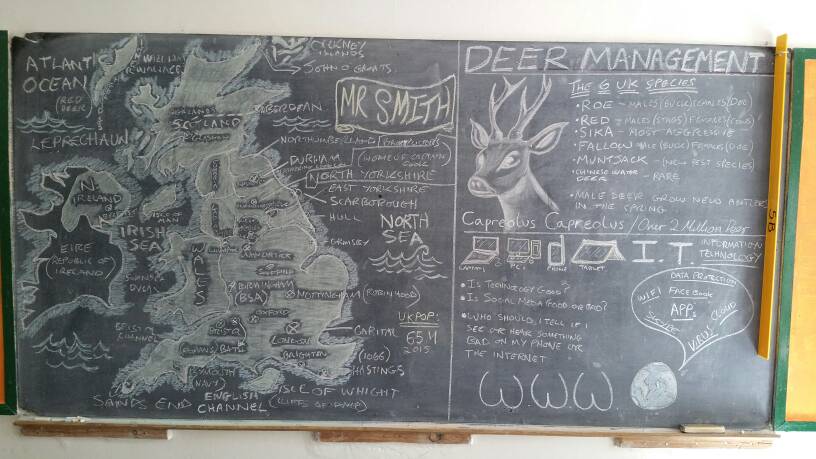 ATLANTIC
OCEAN
(RED
DEER)
LEPRECHAUN
ORKNEY
ISLANDS
JOHN O GROATS
MR SMITH
ABERDEEN
SCOTLAND
DURHAM
(HOME OF CAPTAIN
COOK
NORTH YORKSHIRE
EAST YORKSHIRE
SCARBOROUGH
HULL
GRIMSBY
NORTH
SEA
N.
IRELAND
ISLE OF
MAN
IRISH
SEA
EIRE
(REPUBLIC OF
IRELAND)
WALES
BIRMINGHAM
(BSA)
NOTTINGHAM (ROBIN HOOD)
OXFORD
UK POP:
65M
2015
CAPITAL
LONDON
BRIGHTON
(1066)
HASTINGS
PLYMOUTH
(NAVY)
ISLE OF WHIGHT
ENGLISH
CHANNEL
SANDS END
DEER MANAGEMENT
THE 6 UK SPECIES
• ROE - MALES (BUCK) FEMALES (DOE)
• RED - MALES (STAGS) FEMALES (COWS)
• SIKA - MOST AGGRESSIVE
• FALLOW MALE (BUCK) FEMALES (DOE)
• MUNTJACK - (NEW PEST SPECIES)
• CHINESE WATER
DEER - RARE
• MALE DEER GROW NEW ANTLERS
IN THE SPRING
Capreolus Capreolus / Over 2 Million Deer
LAPTOP PC's PHONE TABLET
I.T INFORMATION
TECHNOLOGY
• IS TECHNOLOGY GOOD?
• IS SOCIAL MEDIA GOOD OR BAD?
• WHO SHOULD I TELL IF I
SEE OR HEAR SOMETHING
BAD ON MY PHONE OR
THE INTERNET
DATA PROTECTION
WIFI FACEBOOK
APPs
CLOUD
VIRUS
WWW
5B